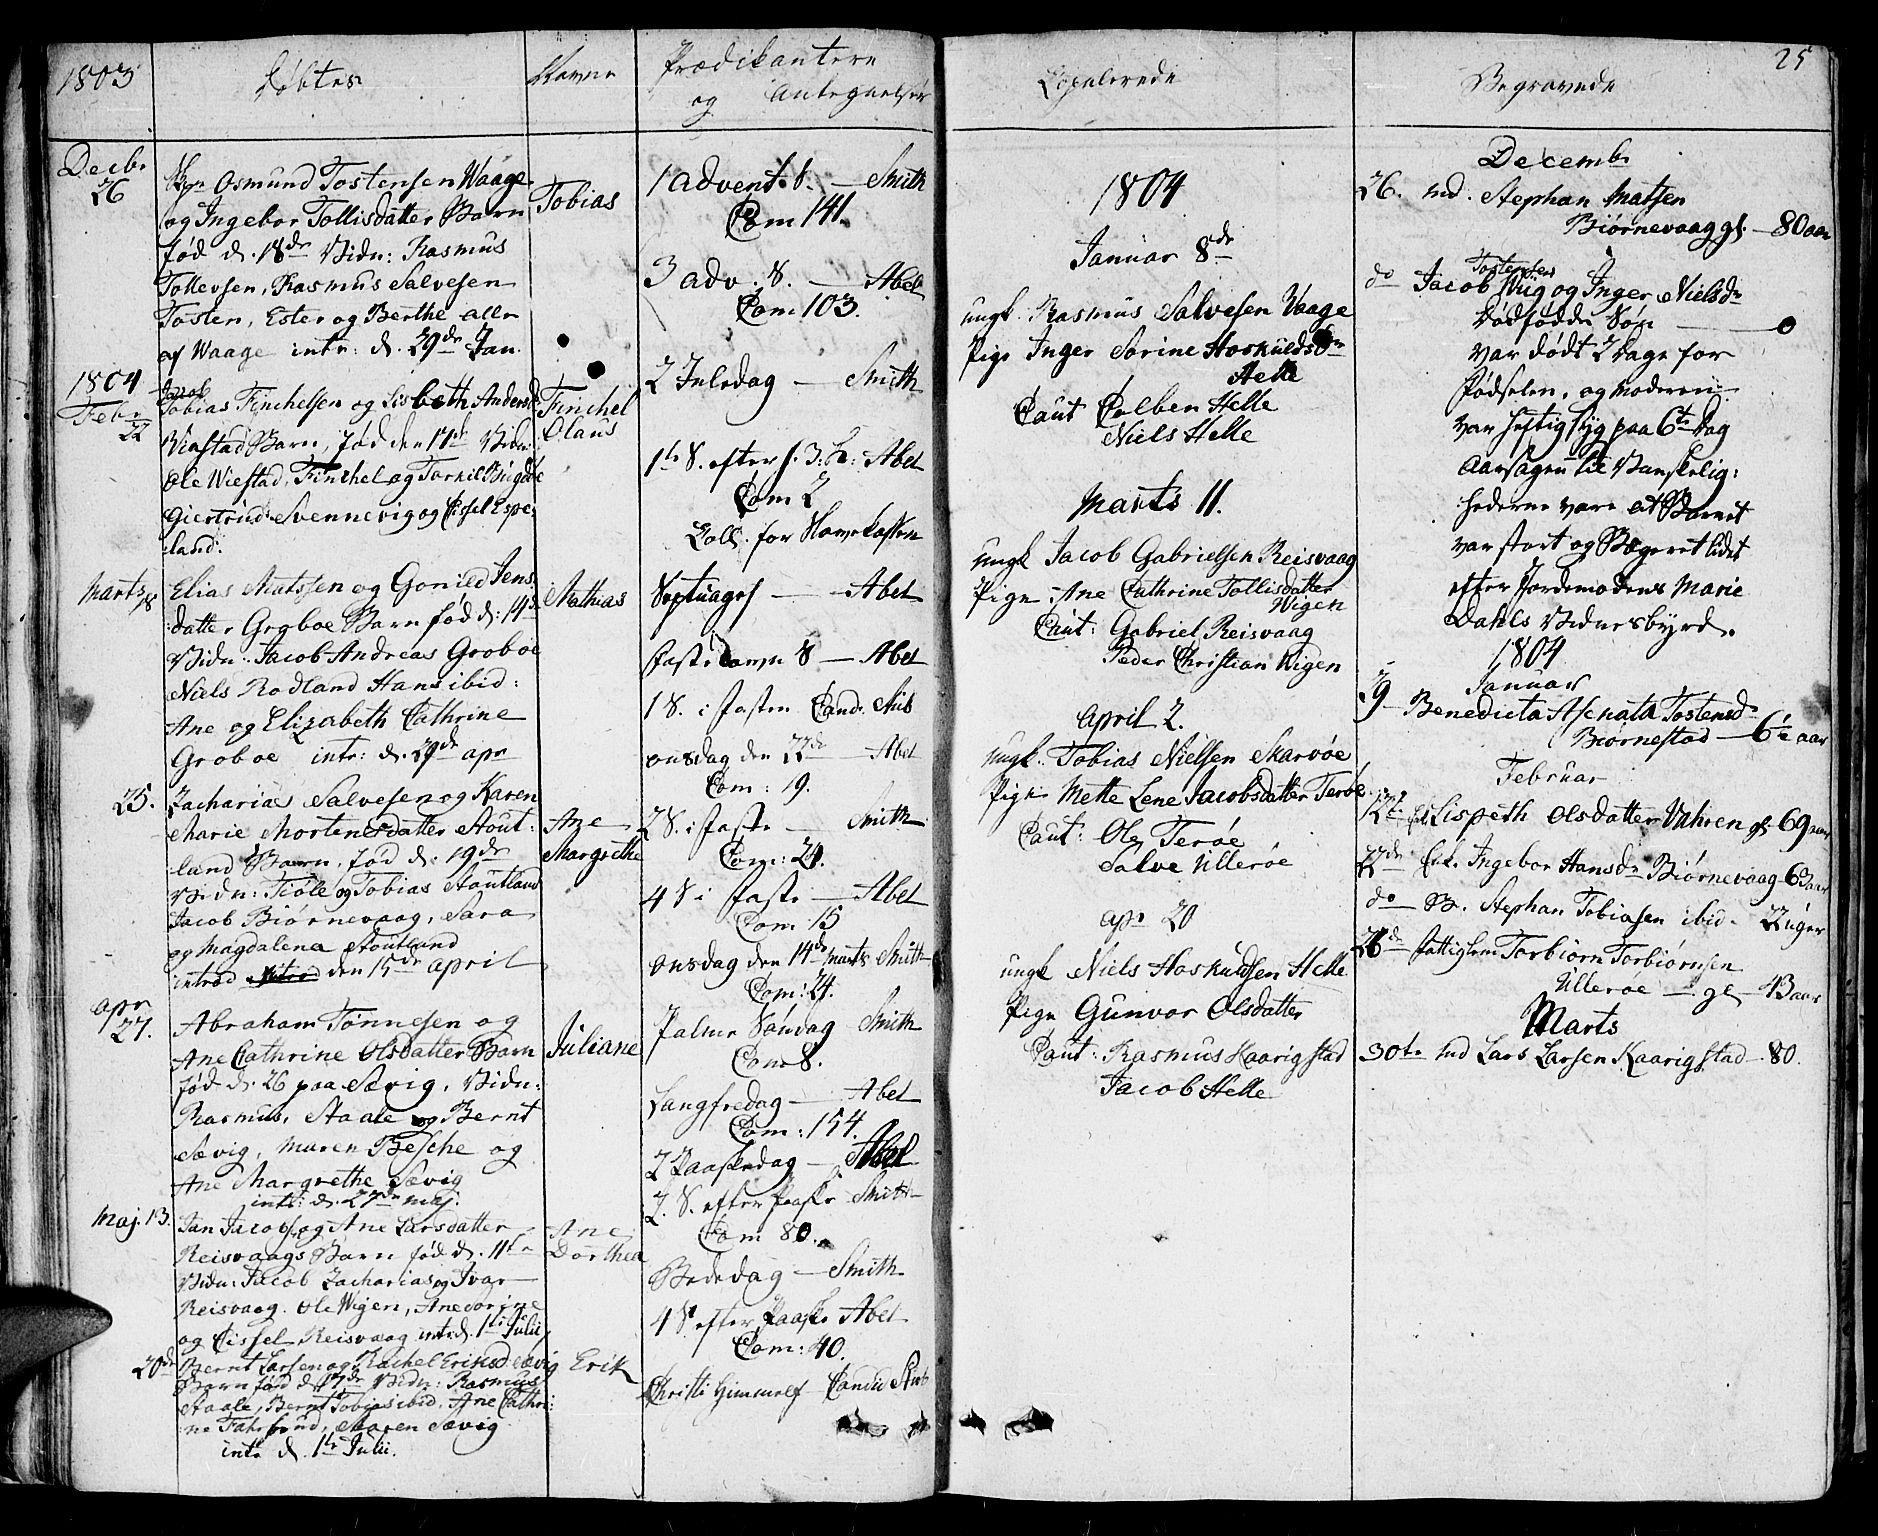 1803
Døbtes
Navne
Prædikantere
og Antegnelser
Decbr
26
Osmund Tostensen Waage
og Ingebor Tollisdatter Barn
fød d. 18de Vidn: Rasmus
Tollevsen, Rasmus Salvesen
Tosten, Ester og Berthe alle
af Waage intr: d. 29de Jan.
Tobias
1804
Febr
22
Tobias Finchelsen og Lisbeth Andersd
Viestad Barn, fød den 17de Vidn
Ole Wiestad, Finchel og Torkil
Giertrud Svennevig og Cissel Espe-
land.
Finchel
Olaus
Marts 18
Elias Matssen og Gonild Jens
datter Groboe Barn fød d: 14de
Vidn: Jacob Andreas Groboe
Niels Rodland Hans ibid:
Ane og Elizabeth Cathrine
Groboe intr: d. 29de apr
Mathias
25.
Zacharias Salvesen og Karen
Marie Mortensdatter Stout-
land Barn, fød d: 19de
Vidn: Tiøle og Tobias Stoutland
Jacob Biørnevaag, Sara
og Magdalena Stoutland
introd den 15de april
Ane
Margrethe
apr
27.
Abraham Tønnesen og
Ane Cathrine Olsdatter Barn
fød d. 26 paa Sævig, Vidn:
Rasmus, Staale og Bernt
Sævig, Maren Besche og
Ane Margrethe Sævig
intr: d. 27de maj.
Juliane
Maj. 13.
Jan Jacobs og Ane Larsdatter
Reisvaags Barn fød d. 11te
Vidn: Jacob Zacharias og Ivar
Reisvaag. Ole Wigen, Ane Sorine
og Cissel Reisvaag intr d. 1te Julii
Ane
Dorthea
20de
Bernt Larsen og Rachel Eriksd Sævig
Barn fød d 17de Vidn: Rasmus
Staale, Bernt Tobias ibid. Ane Cathri-
ne Fahrsund, Maren Sævig
intr d. 1te Julii.
Erik
1 Advent. S. — Smith
Com 141.
3 adv: S. — Abel
Com 103.
2 Juledag — Smith
1te S. efter h. 3. K: Abel
Com 2
Coll: for
Septuages — Abel
Faste S — Abel
1 S. i Fasten Cand. Stub
onsdag den 22de Abel
Com: 19.
2 S. i Faste — Smith
Com: 24.
4 S i Faste — Abel
Com 15
Onsdag den 14de Marts Smith
Com: 24.
Palme Søndag Smith
Com 8.
Langfredag — Abel
Com: 154.
2 Paaskedag — Abel
2. S. efter Paaske Smith
Com 80.
Bededag — Smith
4 S. efter Paaske Abel
Com: 40.
Christi Himmelf Candid Stub
Copulerede
1804
Januar 8de
ungk. Rasmus Salvesen Vaage
Pige Inger Sorine Hoskuldsdr
Helle
Caut Colben Helle
Niels Helle
Marts 11.
ungk Jacob Gabrielsen Reisvaag
Pige Ane Cathrine Tollisdatter
Wigen
Caut: Gabriel Reisvaag
Peder Christian Wigen
April 2.
ungk. Tobias Nielsen Skarvøe
Pige Mette Lene Jacobsdatter Terøe
Caut: Ole Terøe
Salve Ullerøe
apr 20
ungk Niels Hoskuldsen Helle
Pige Gunvor Olsdatter
Caut: Rasmus Haarigstad
Jacob Helle
25
Begravede
Decemb.
26. md. Stephan Matsen
Biørnevaag gl. — 80 aar
do Jacob Tostensen Wiig og Inger Nielsdr
Dødfødde Søn — 0
var dødt 2 Dage før
Fødselen, og Moderen
var heftig syg paa 6te Dag
Aarsagen til Vanskelig:
hederne vare at Barnet
var stort og Bægeret lidet
efter Jordemoderns Marie
Dahls Vidnesbyrd.
1804
Januar
Benedicta Asenata Tostensd
Biørnestad — 6½ aar
Februar
12te Lispeth Olsdatter Vahren gl. 69 aar
22de Enk. Ingebor Hansdr Biørnevaag 63 aar
do B. Stephan Tobiasen ibid — 22 uger
26de Fattiglem Torbiørn Torbiørnsen
Ullerøe — gl — 43 aar
Marts
30te md Lars Larsen Kaarigstad 80.